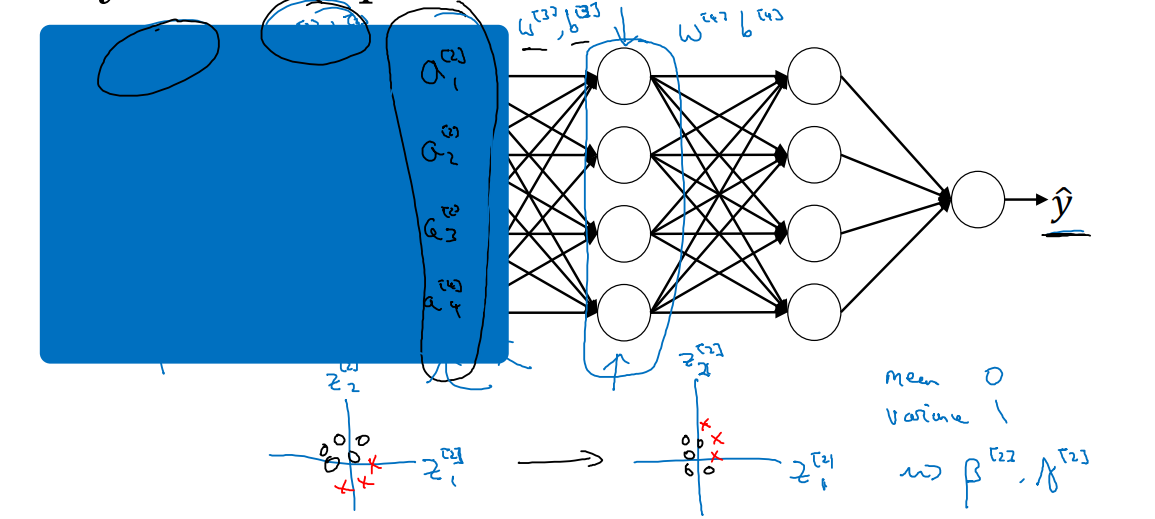 w^[3], b^[3] w^[4] b^[4]
a_1^[2]
a_2^[2]
a_3^[2]
a_4^[2]
ŷ
z_2^[2]
z_1^[2]
z_2^[2]
z_1^[2]
mean 0
variance 1
β^[2], γ^[2]